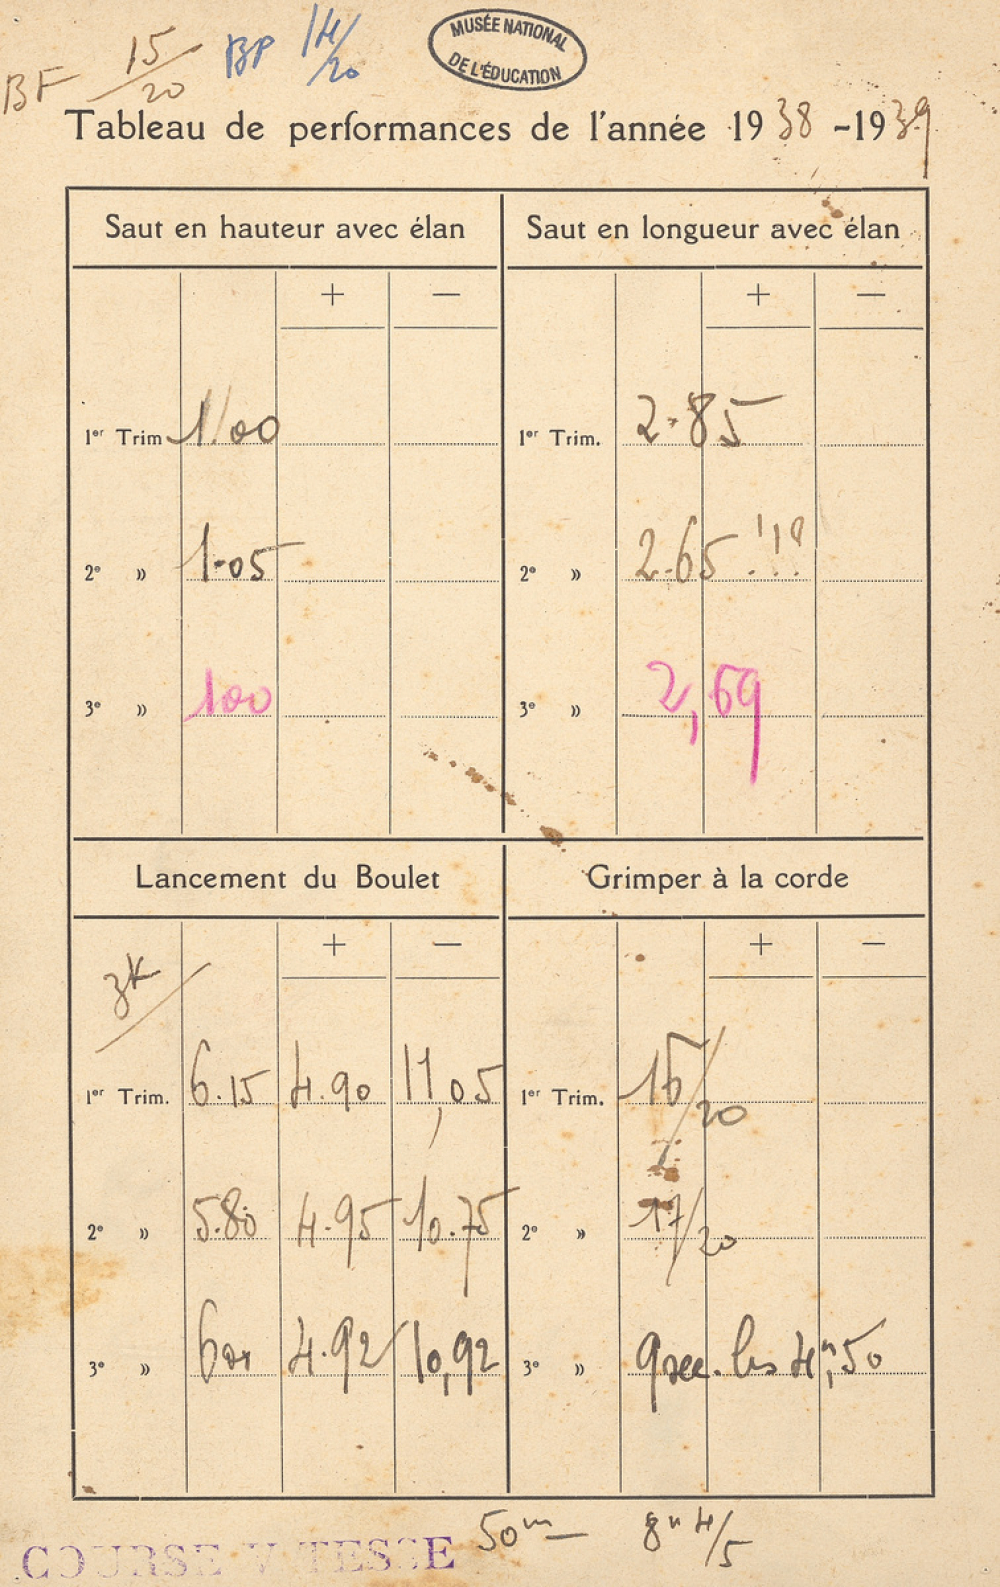 BF 15/20 BP 14/20
MUSÉE NATIONAL
DE L'ÉDUCATION
Tableau de performances de l'année 1938 -1939
Saut en hauteur avec élan
+ —
1er Trim 1,00
2e » 1.05
3e » 100
Saut en longueur avec élan
+ —
1er Trim. 2.85
2e » 2.65 !!!
3e » 2,69
Lancement du Boulet
+ —
3K
1er Trim. 6.15 4.90 11,05
2e » 5.80 4.95 10.75
3e » 600 4.92 10,92
Grimper à la corde
+ —
1er Trim. 16/20
2e » 17/20
3e » 9 sec. les 4m,50
COURSE VITESSE 50m 8" 4/5